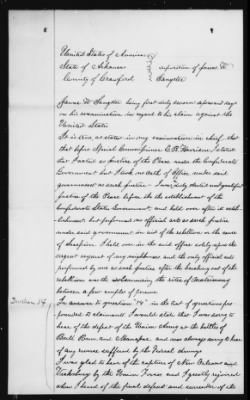 8
United States of America
State of Arkansas
County of Crawford
deposition of James M
James M being first duly sworn upon oath says
in his examination in regard to his claim against the
United States
It is true, as stated in my examination in chief, that
that before Special Commissioner E. B. Harrison, I stated
that I acted as Justice of the Peace under the Confederate
Government but I took no oath of Office under said
government as such Justice - I was duly elected and qualified
Justice of the Peace before the establishment of the
Confederate States Government and held over after its estab-
lishment but performed no official acts as such Justice
under said government in aid of the rebellion or the cause
of secession. I held over in the said office solely upon the
urgent request of my neighbors and the only official acts
performed by me as such Justice after the breaking out of the
rebellion was the solemnizing the rites of matrimony
between a few couples of persons.
Question 14. In answer to question "14" in the list of questions pro-
pounded to claimants I would state that I was sorry to
hear of the defeat of the Union Army at the battles of
Bull Run and Manassas and was always sorry to hear
of any reverse suffered by the Federal Army
I was glad to hear of the capture of New Orleans and
Vicksburg by the Union Forces and I greatly rejoiced
when I heard of the final defeat and surrender of the